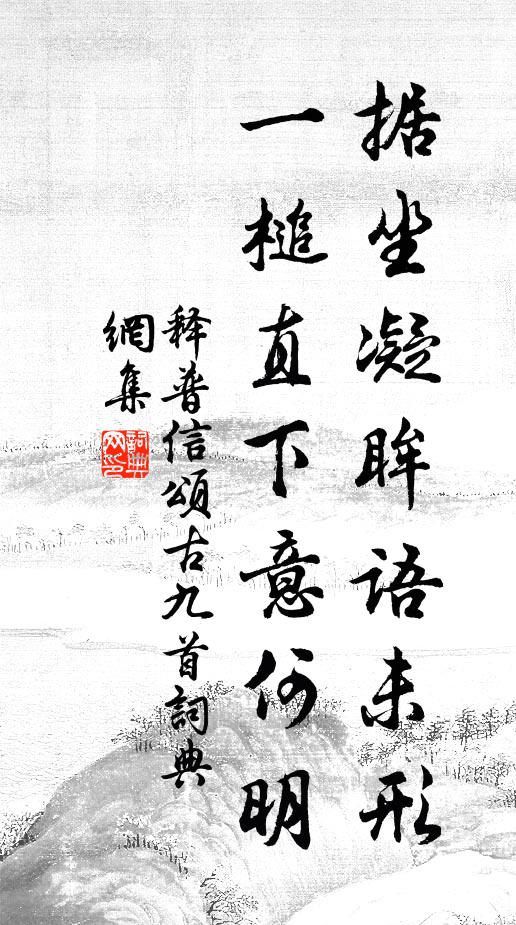 据坐凝眸语未形
一槌直下意何明
释普信颂古九首詞典
網集
詞典
网印